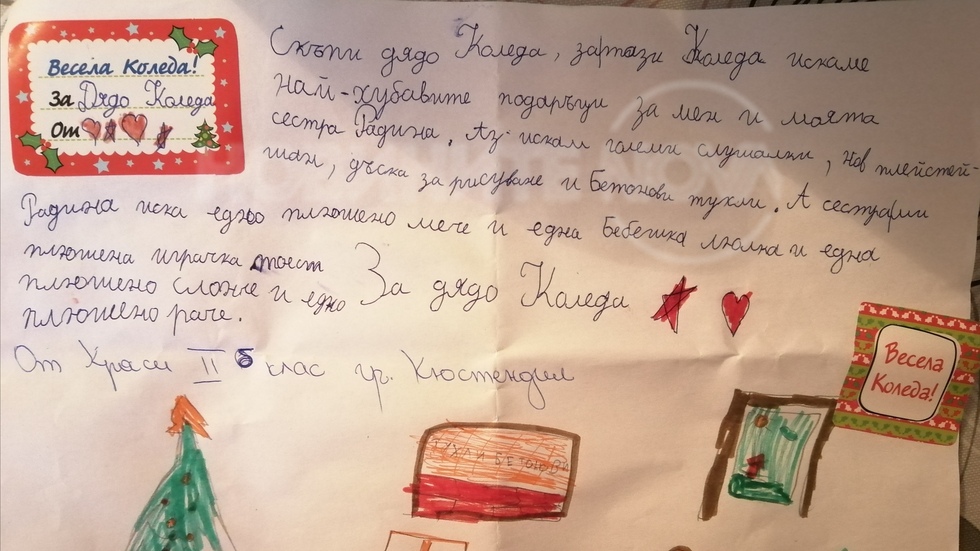 Весела Коледа!
За Дядо Коледа
От
Скъпи дядо Коледа, зарпази Коледа искаме
най-хубавите подаръци за мен и моята
сестра Радина. Аз искам големи слушалки, нов плейстей-
шан, дъска за рисуване и Бетонови тухли. А сестрами
Радина иска едно плюшено мече и една Бебешка люлка и една
плюшена играчка тоест
плюшено слонче и едно
плюшено раче.
За дядо Коледа
От Краси II б клас гр. Кюстендил
Весела
Коледа!
ТУХЛИ БЕТОНОВИ
NOVA